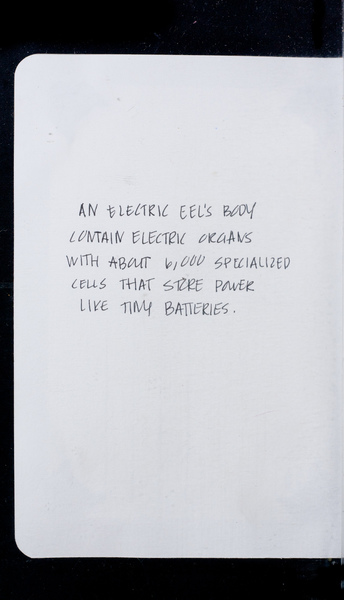 AN ELECTRIC EEL'S BODY
CONTAIN ELECTRIC ORGANS
WITH ABOUT 6,000 SPECIALIZED
CELLS THAT STORE POWER
LIKE TINY BATTERIES.